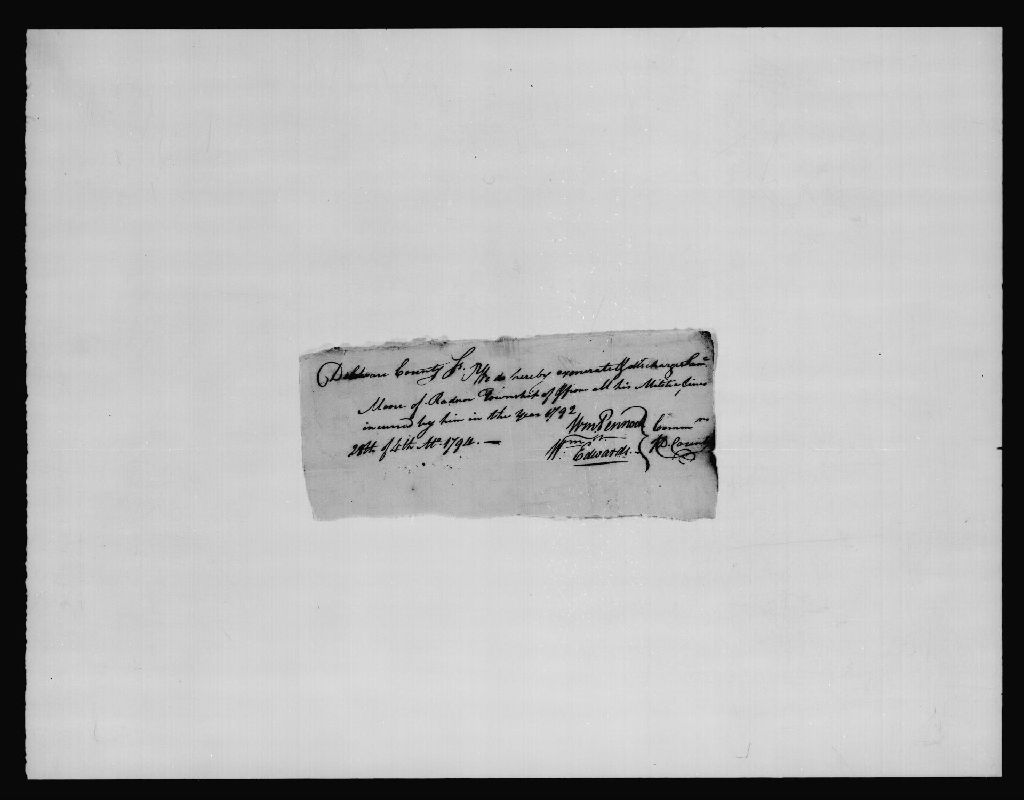 Delaware County Ss. We do hereby exonerate & discharge Sam.l
Moore of Radnor Township of & from all his Militia fines
incurred by him in the year 1792
28th of 4th Mo. 1794. —
Wm Pennock
Wm Edwards
Comm.rs
D. County